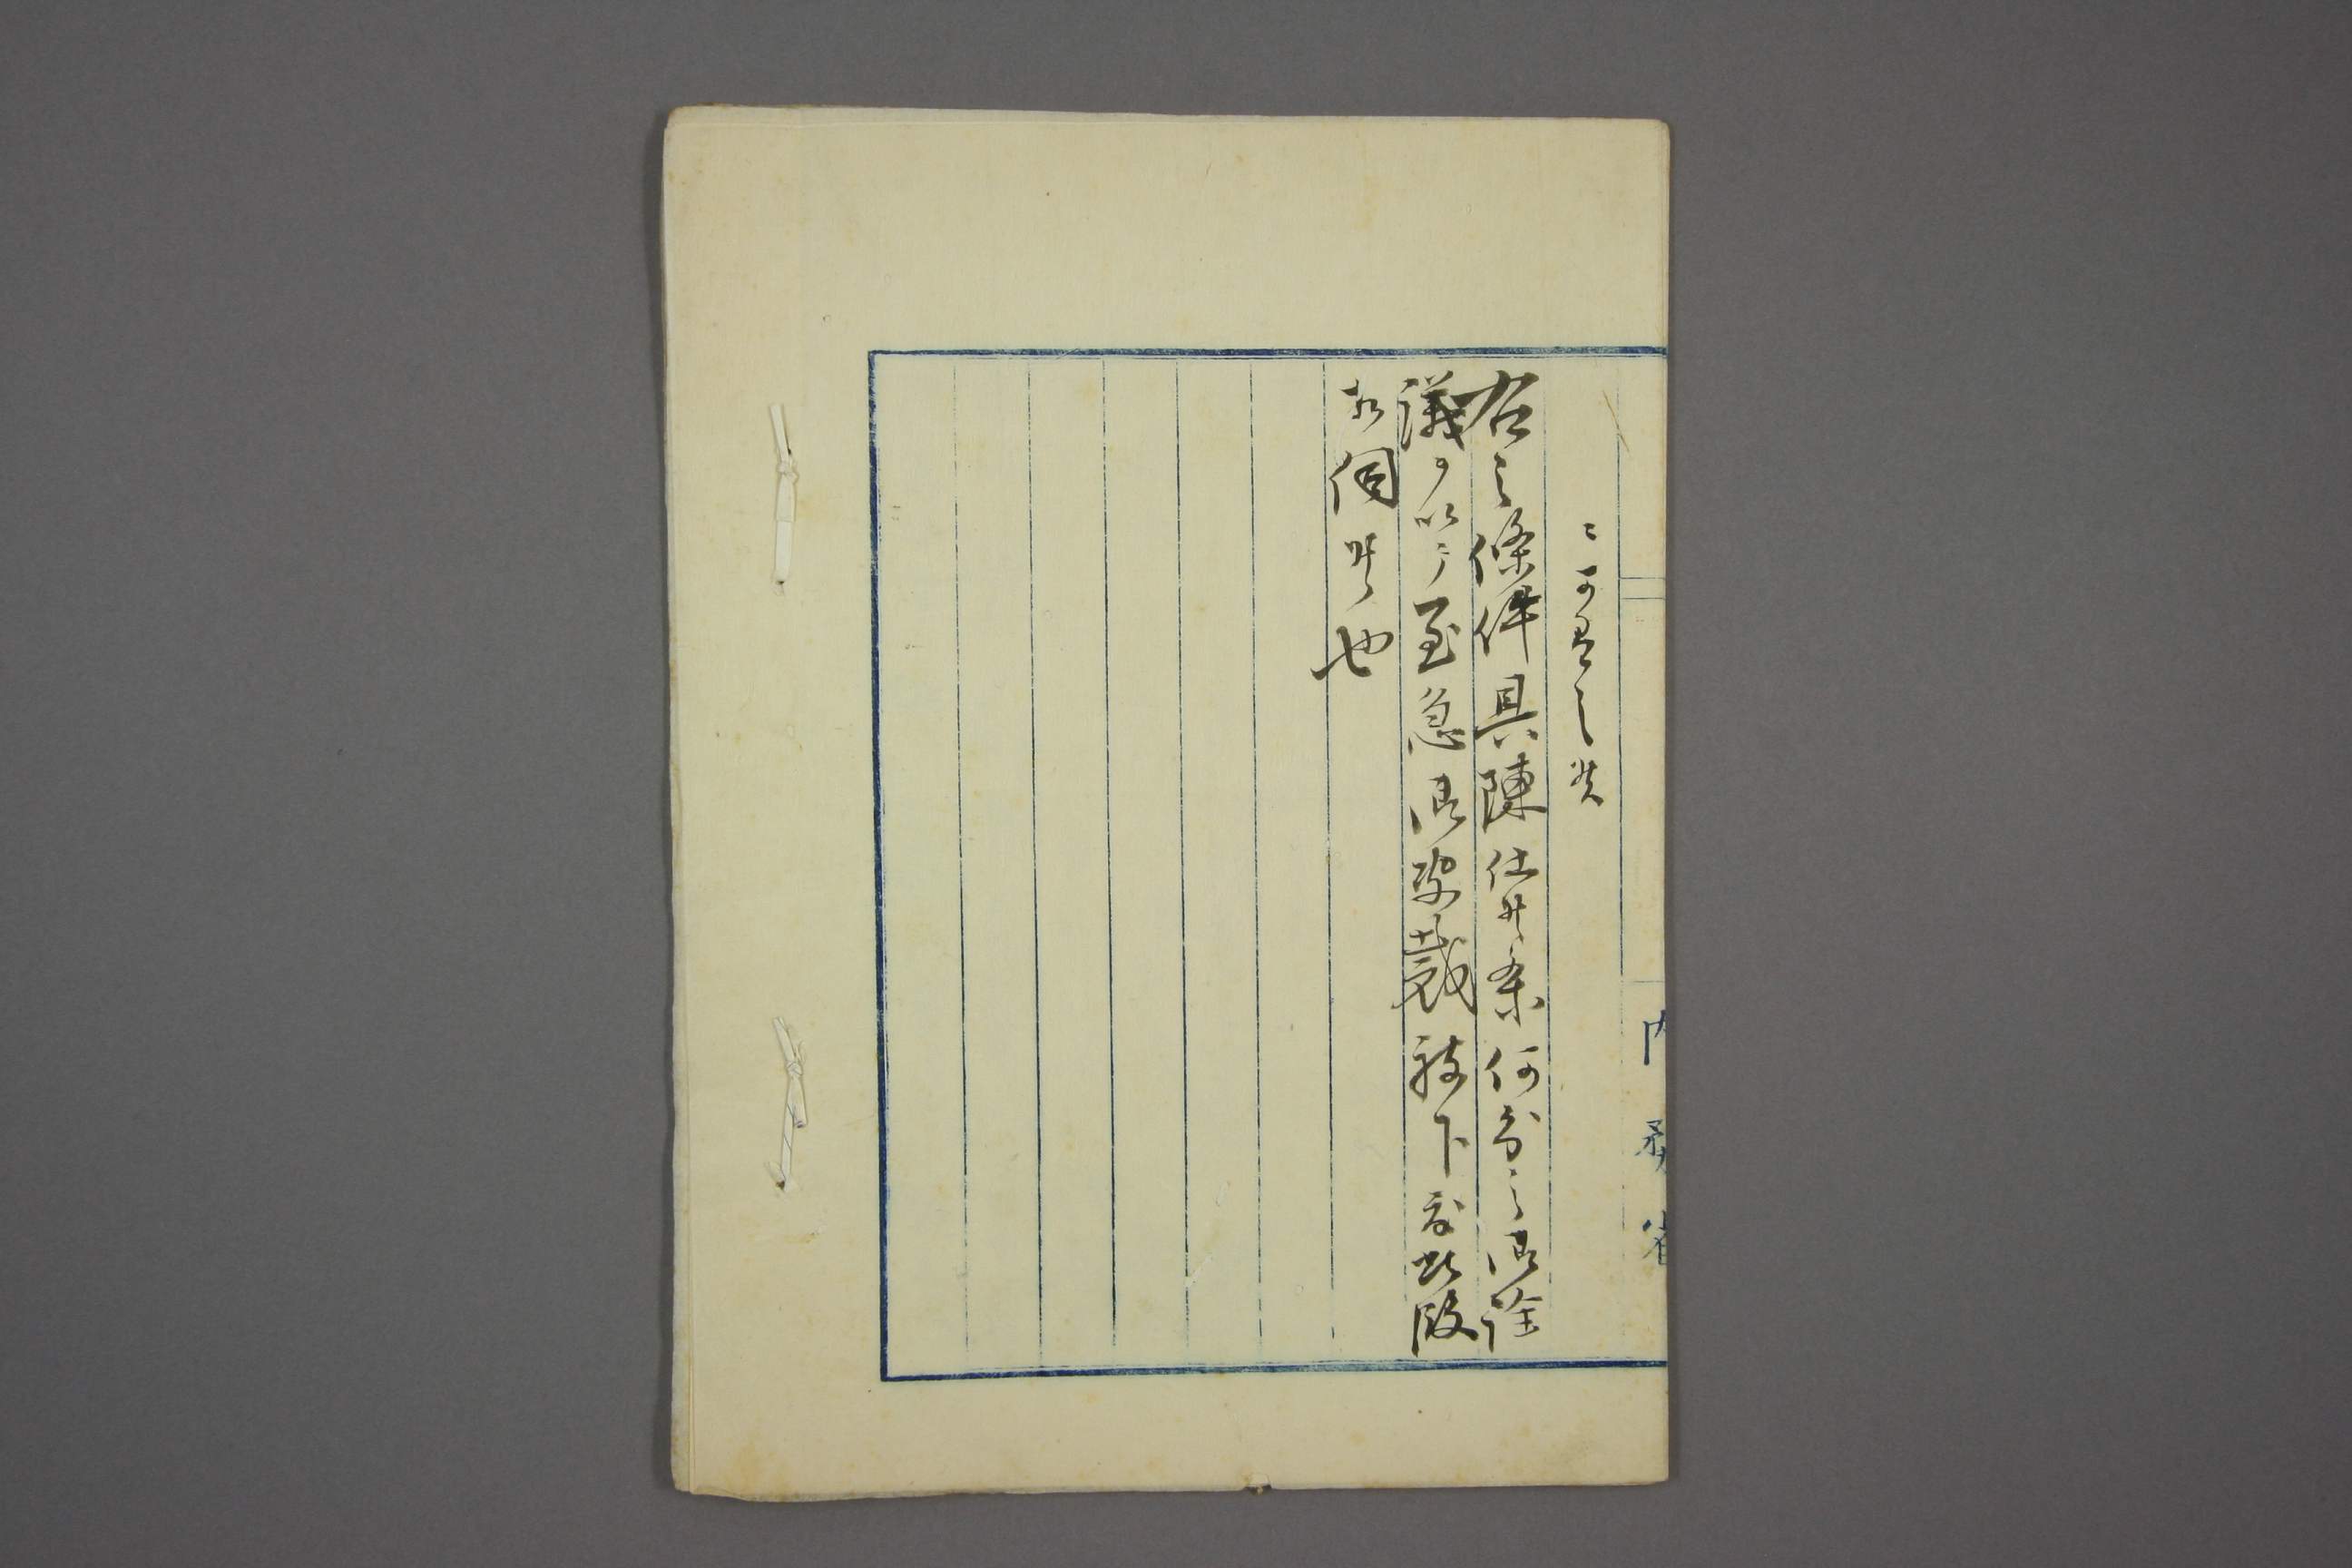 内務省
ニ可有之哉
右之條件具陳仕候条何分之御詮
議ヲ以テ至急御裁被下度此段
相伺候也